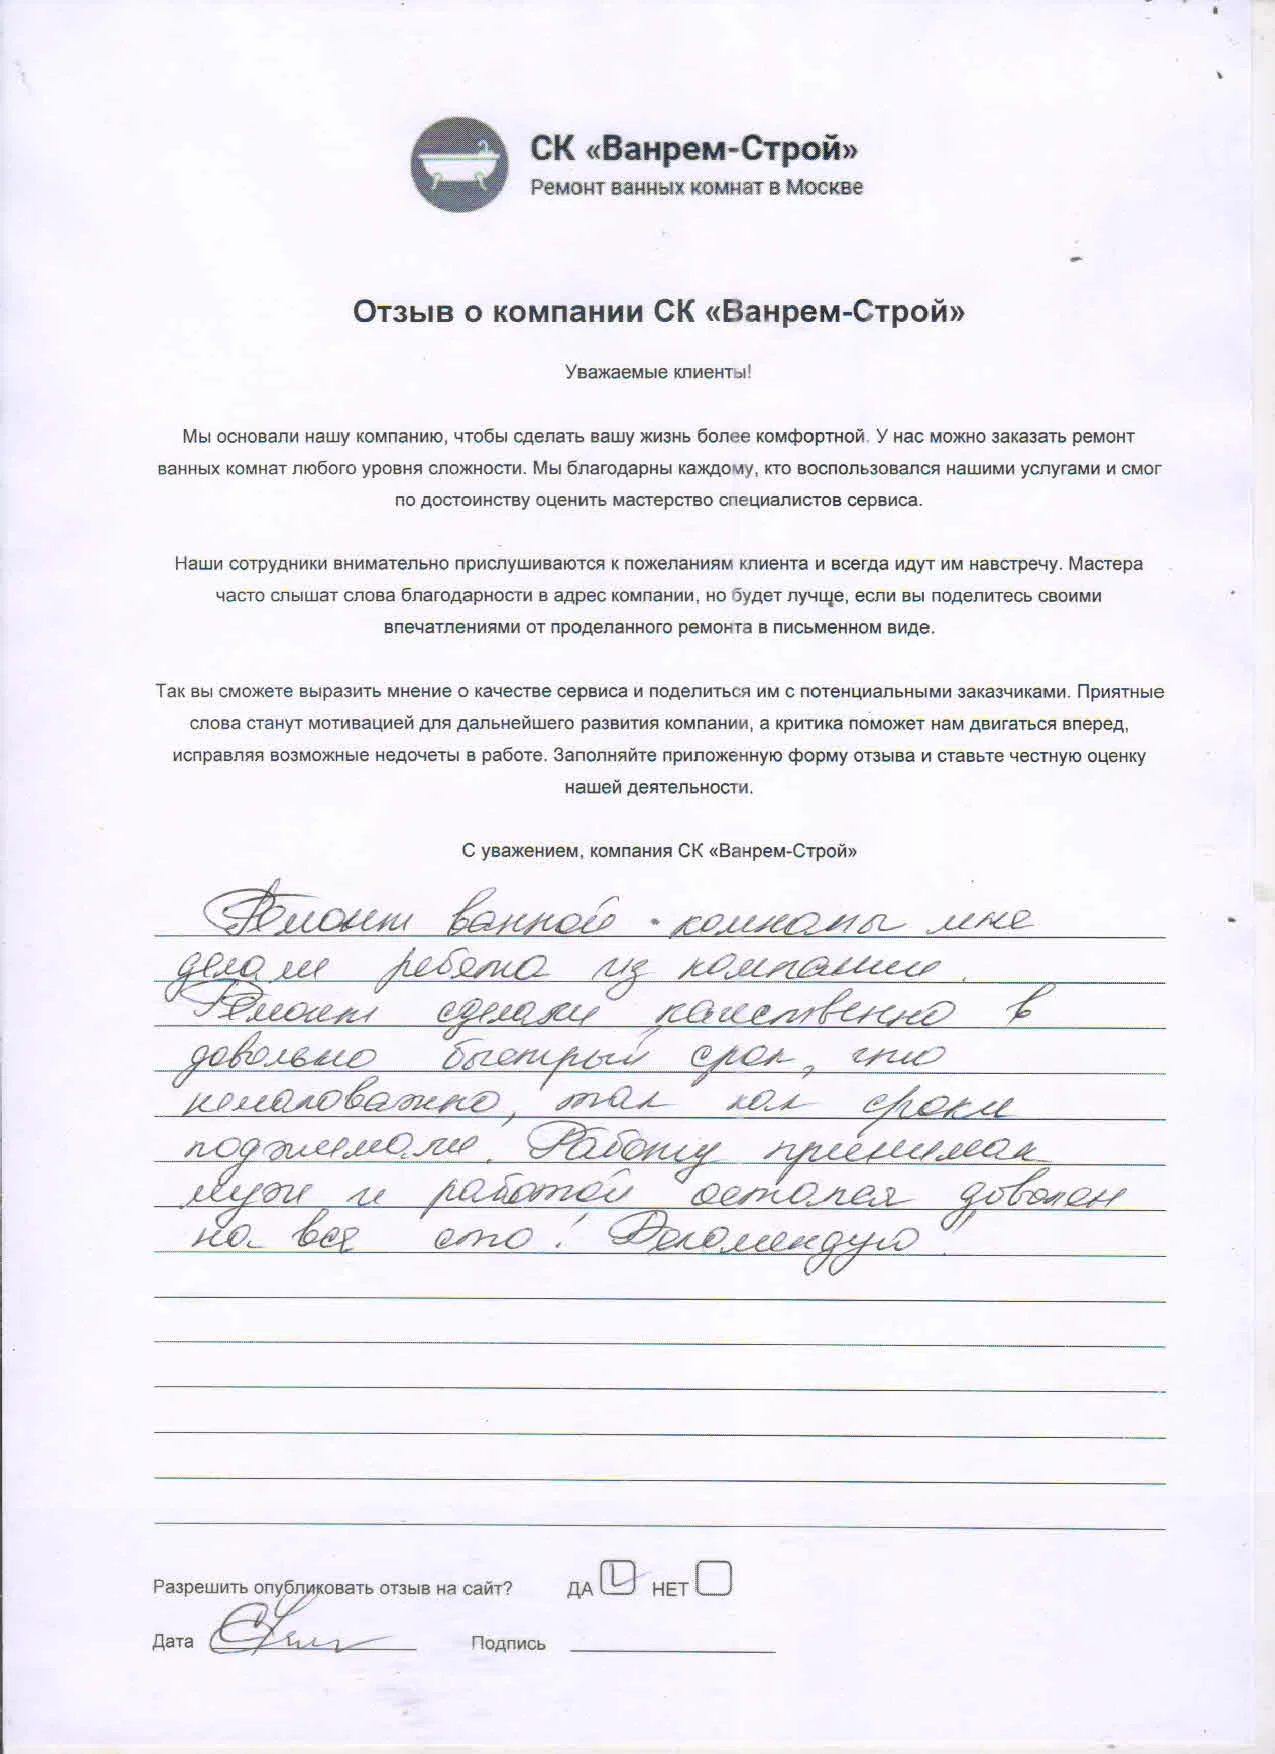 СК «Ванрем-Строй»
Ремонт ванных комнат в Москве
Отзыв о компании СК «Ванрем-Строй»
Уважаемые клиенты!
Мы основали нашу компанию, чтобы сделать вашу жизнь более комфортной. У нас можно заказать ремонт
ванных комнат любого уровня сложности. Мы благодарны каждому, кто воспользовался нашими услугами и смог
по достоинству оценить мастерство специалистов сервиса.
Наши сотрудники внимательно прислушиваются к пожеланиям клиента и всегда идут им навстречу. Мастера
часто слышат слова благодарности в адрес компании, но будет лучше, если вы поделитесь своими
впечатлениями от проделанного ремонта в письменном виде.
Так вы сможете выразить мнение о качестве сервиса и поделиться им с потенциальными заказчиками. Приятные
слова станут мотивацией для дальнейшего развития компании, а критика поможет нам двигаться вперед,
исправляя возможные недочеты в работе. Заполняйте приложенную форму отзыва и ставьте честную оценку
нашей деятельности.
С уважением, компания СК «Ванрем-Строй»
Ремонт ванной комнаты мне
делали ребята из компании.
Ремонт сделали качественно в
довольно быстрый срок, что
немаловажно, так как сроки
поджимали. Работу принимал
муж и работой остался доволен
на все сто! Рекомендую!
Разрешить опубликовать отзыв на сайт? ДА НЕТ
Дата Подпись